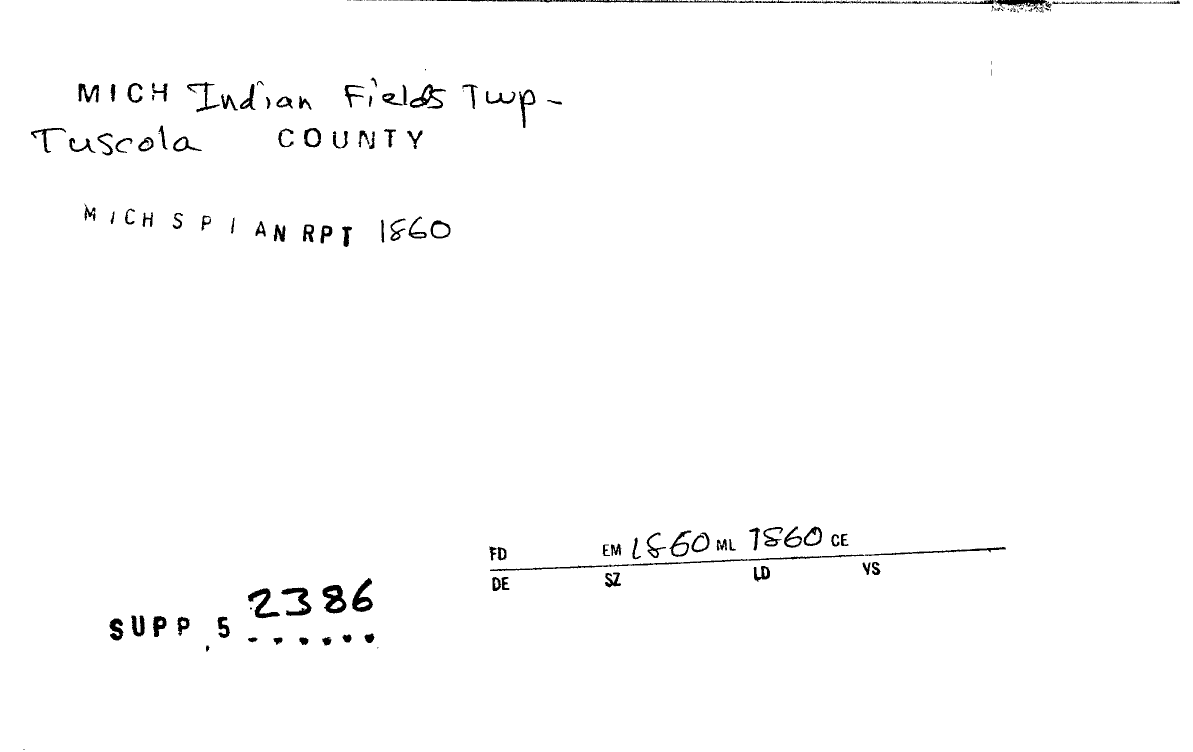 MICH Indian Fields Twp-
Tuscola COUNTY
MICH SPIAN RPT 1860
FD EM 1860 ML 1860 CE
DE SZ LD VS
SUPP.5 2386